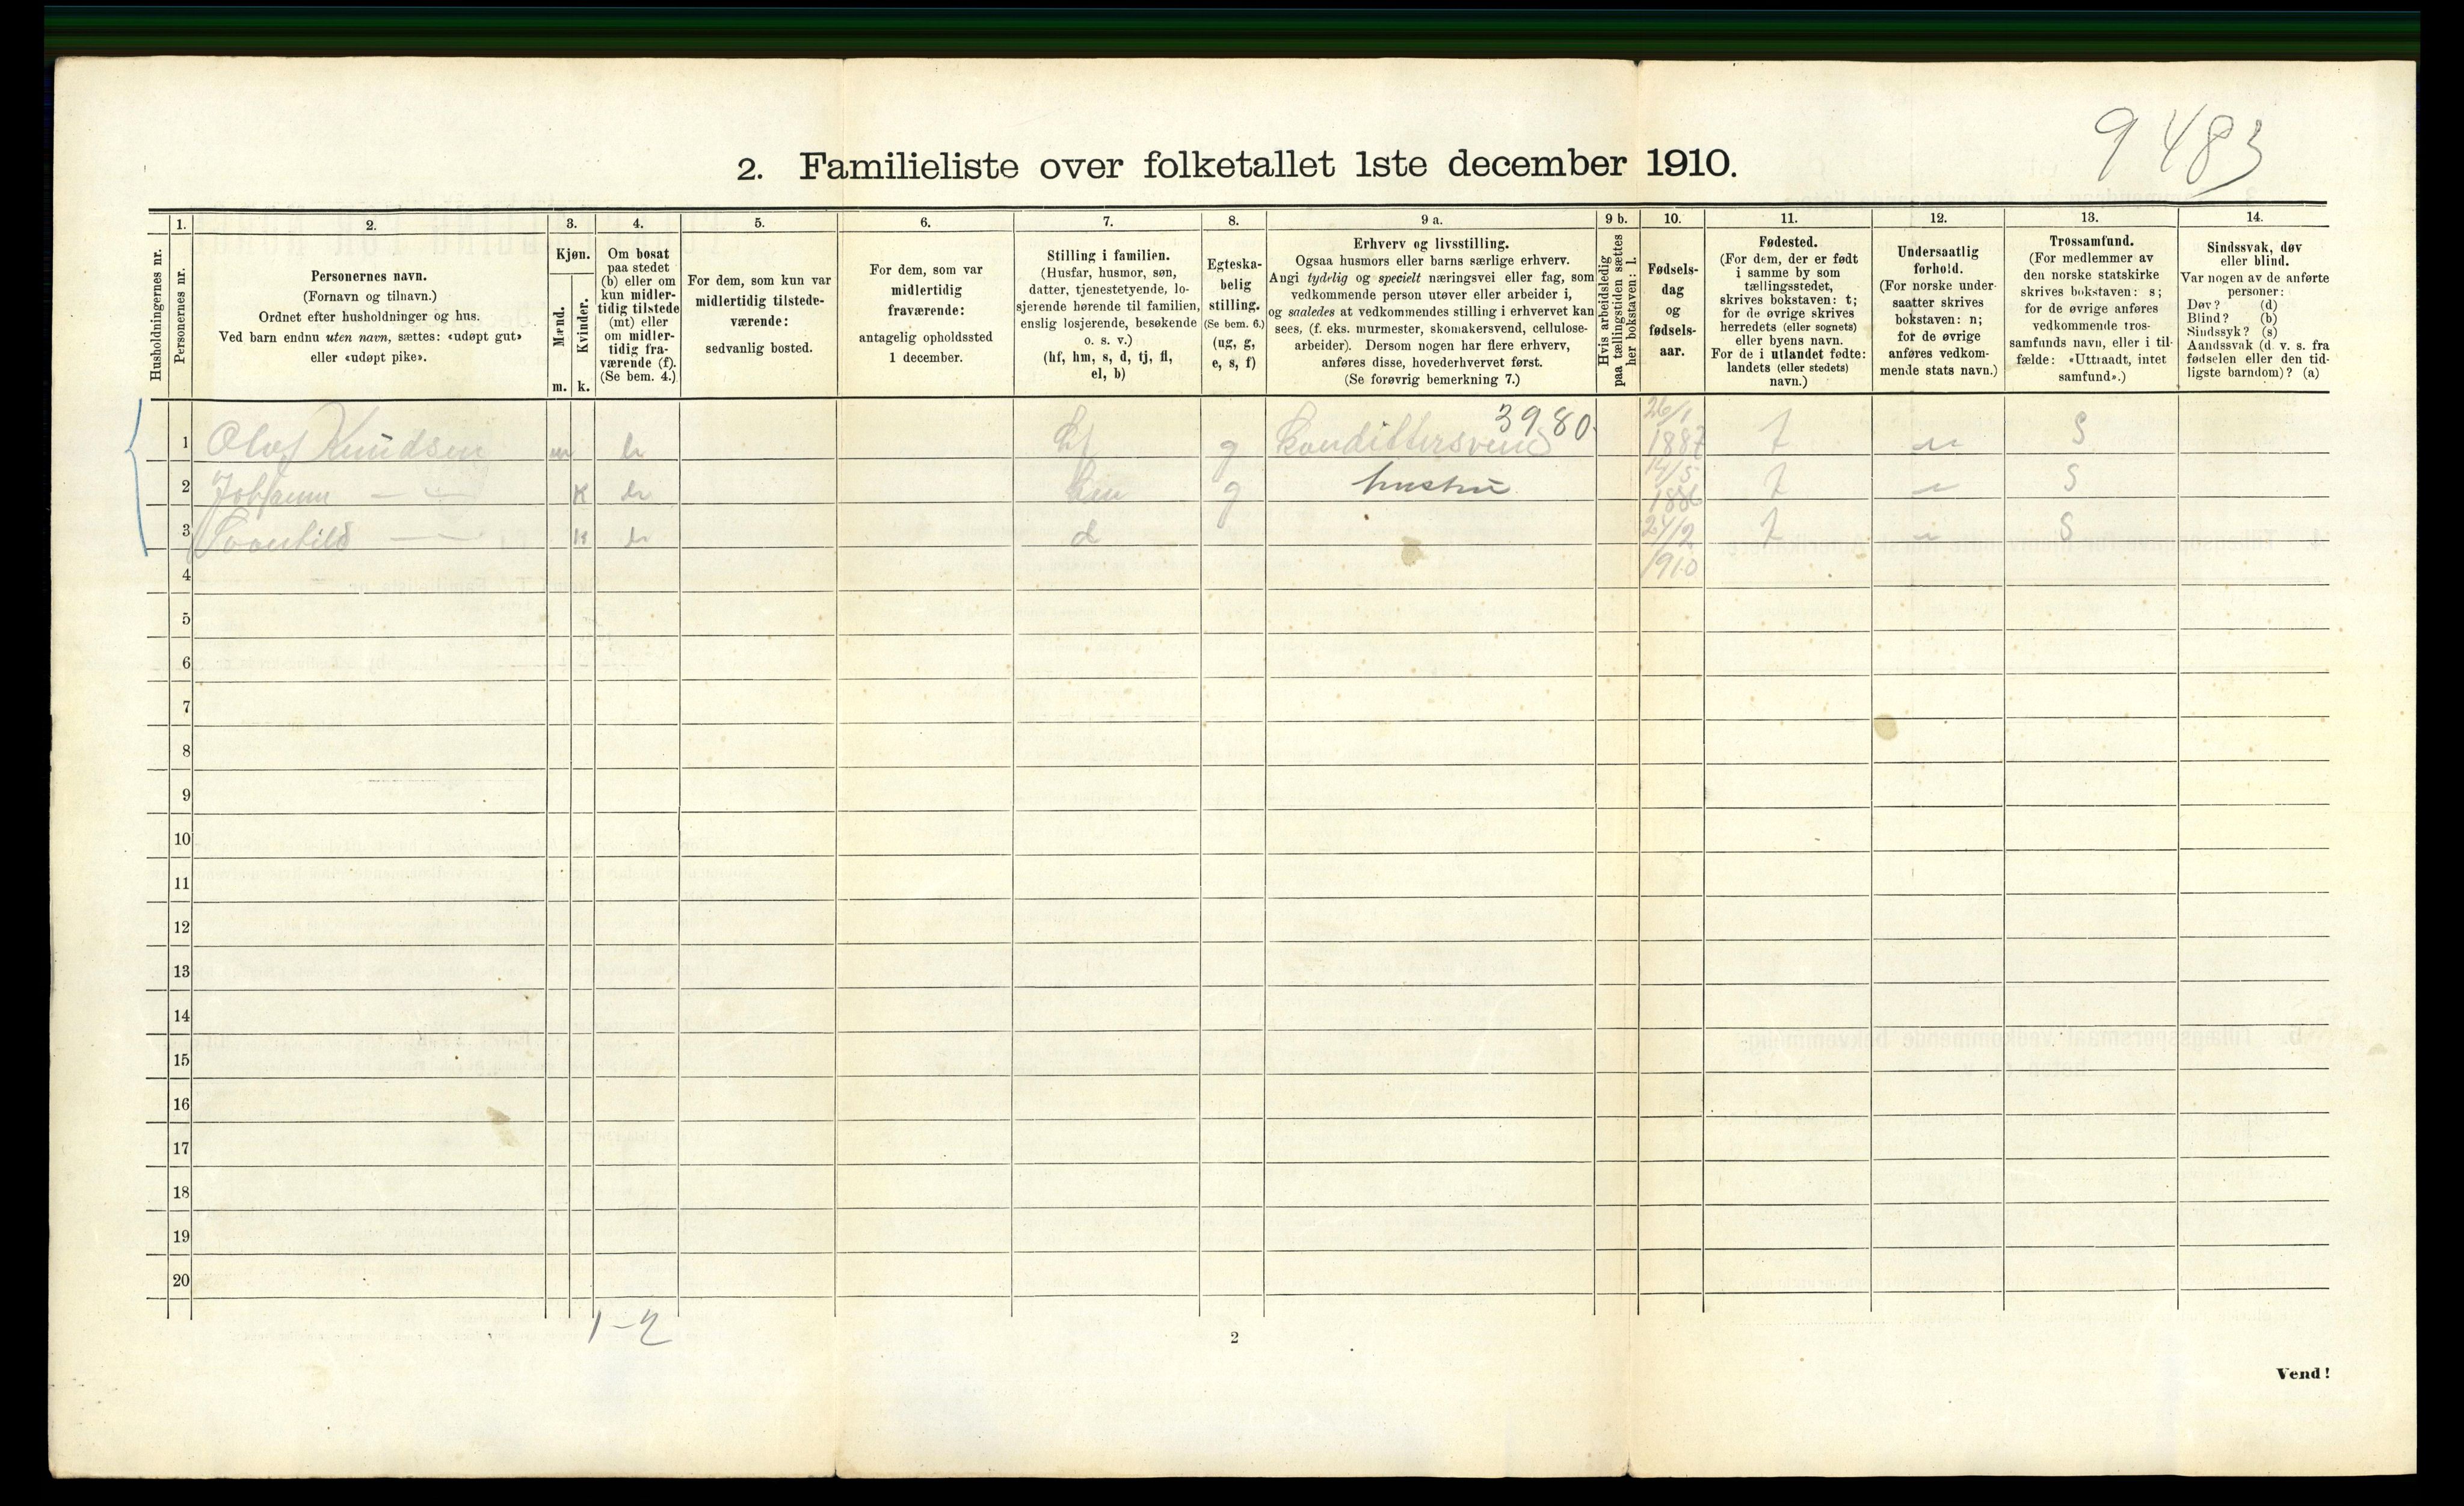 9483
2. Familieliste over folketallet 1ste december 1910.
Husholdningernes nr.
1.
Personernes nr.
2.
Personernes navn.
(Fornavn og tilnavn.)
Ordnet efter husholdninger og hus.
Ved barn endnu uten navn, sættes: «udøpt gut»
eller «udøpt pike».
3.
Kjøn.
Mænd.
m.
Kvinder.
k.
4.
Om bosat
paa stedet
(b) eller om
kun midler-
tidig tilstede
(mt) eller
om midler-
tidig fra-
værende (f).
(Se bem. 4.)
5.
For dem, som kun var
midlertidig tilstede-
værende:
sedvanlig bosted.
6.
For dem, som var
midlertidig
fraværende:
antagelig opholdssted
1 december.
7.
Stilling i familien.
(Husfar, husmor, søn,
datter, tjenestetyende, lo-
sjerende hørende til familien,
enslig losjerende, besøkende
o. s. v.)
(hf, hm, s, d, tj, fl,
el, b)
8.
Egteska-
belig
stilling.
(Se bem. 6.)
(ug, g,
e, s, f)
9 a.
Erhverv og livsstilling.
Ogsaa husmors eller barns særlige erhverv.
Angi tydelig og specielt næringsvei eller fag, som
vedkommende person utøver eller arbeider i,
og saaledes at vedkommendes stilling i erhvervet kan
sees, (f. eks. murmester, skomakersvend, cellulose-
arbeider). Dersom nogen har flere erhverv,
anføres disse, hovederhvervet først.
(Se forøvrig bemerkning 7.)
9 b.
Hvis arbeidsledig
paa tællingstiden sættes
her bokstaven: l.
10.
Fødsels-
dag
og
fødsels-
aar.
11.
Fødested.
(For dem, der er født
i samme by som
tællingsstedet,
skrives bokstaven: t;
for de øvrige skrives
herredets (eller sognets)
eller byens navn.
For de i utlandet fødte:
landets (eller stedets)
navn.)
12.
Undersaatlig
forhold.
(For norske under-
saatter skrives
bokstaven: n;
for de øvrige
anføres vedkom-
mende stats navn.)
13.
Trossamfund.
(For medlemmer av
den norske statskirke
skrives bokstaven: s;
for de øvrige anføres
vedkommende tros-
samfunds navn, eller i til-
fælde: «Uttraadt, intet
samfund».)
14.
Sindssvak, døv
eller blind.
Var nogen av de anførte
personer:
Døv? (d)
Blind? (b)
Sindssyk? (s)
Aandssvak (d. v. s. fra
fødselen eller den tid-
ligste barndom)? (a)
3980
1 Olaf Knudsen m b hf g Kondittersvend 26/1 1887 t n S
2 — — K b hm g hustru 14/5 1886 t n S
3 — — K b d 24/2 1910 t n S
4
5
6
7
8
9
10
11
12
13
14
15
16
17
18
19
20
1-2
2
Vend!